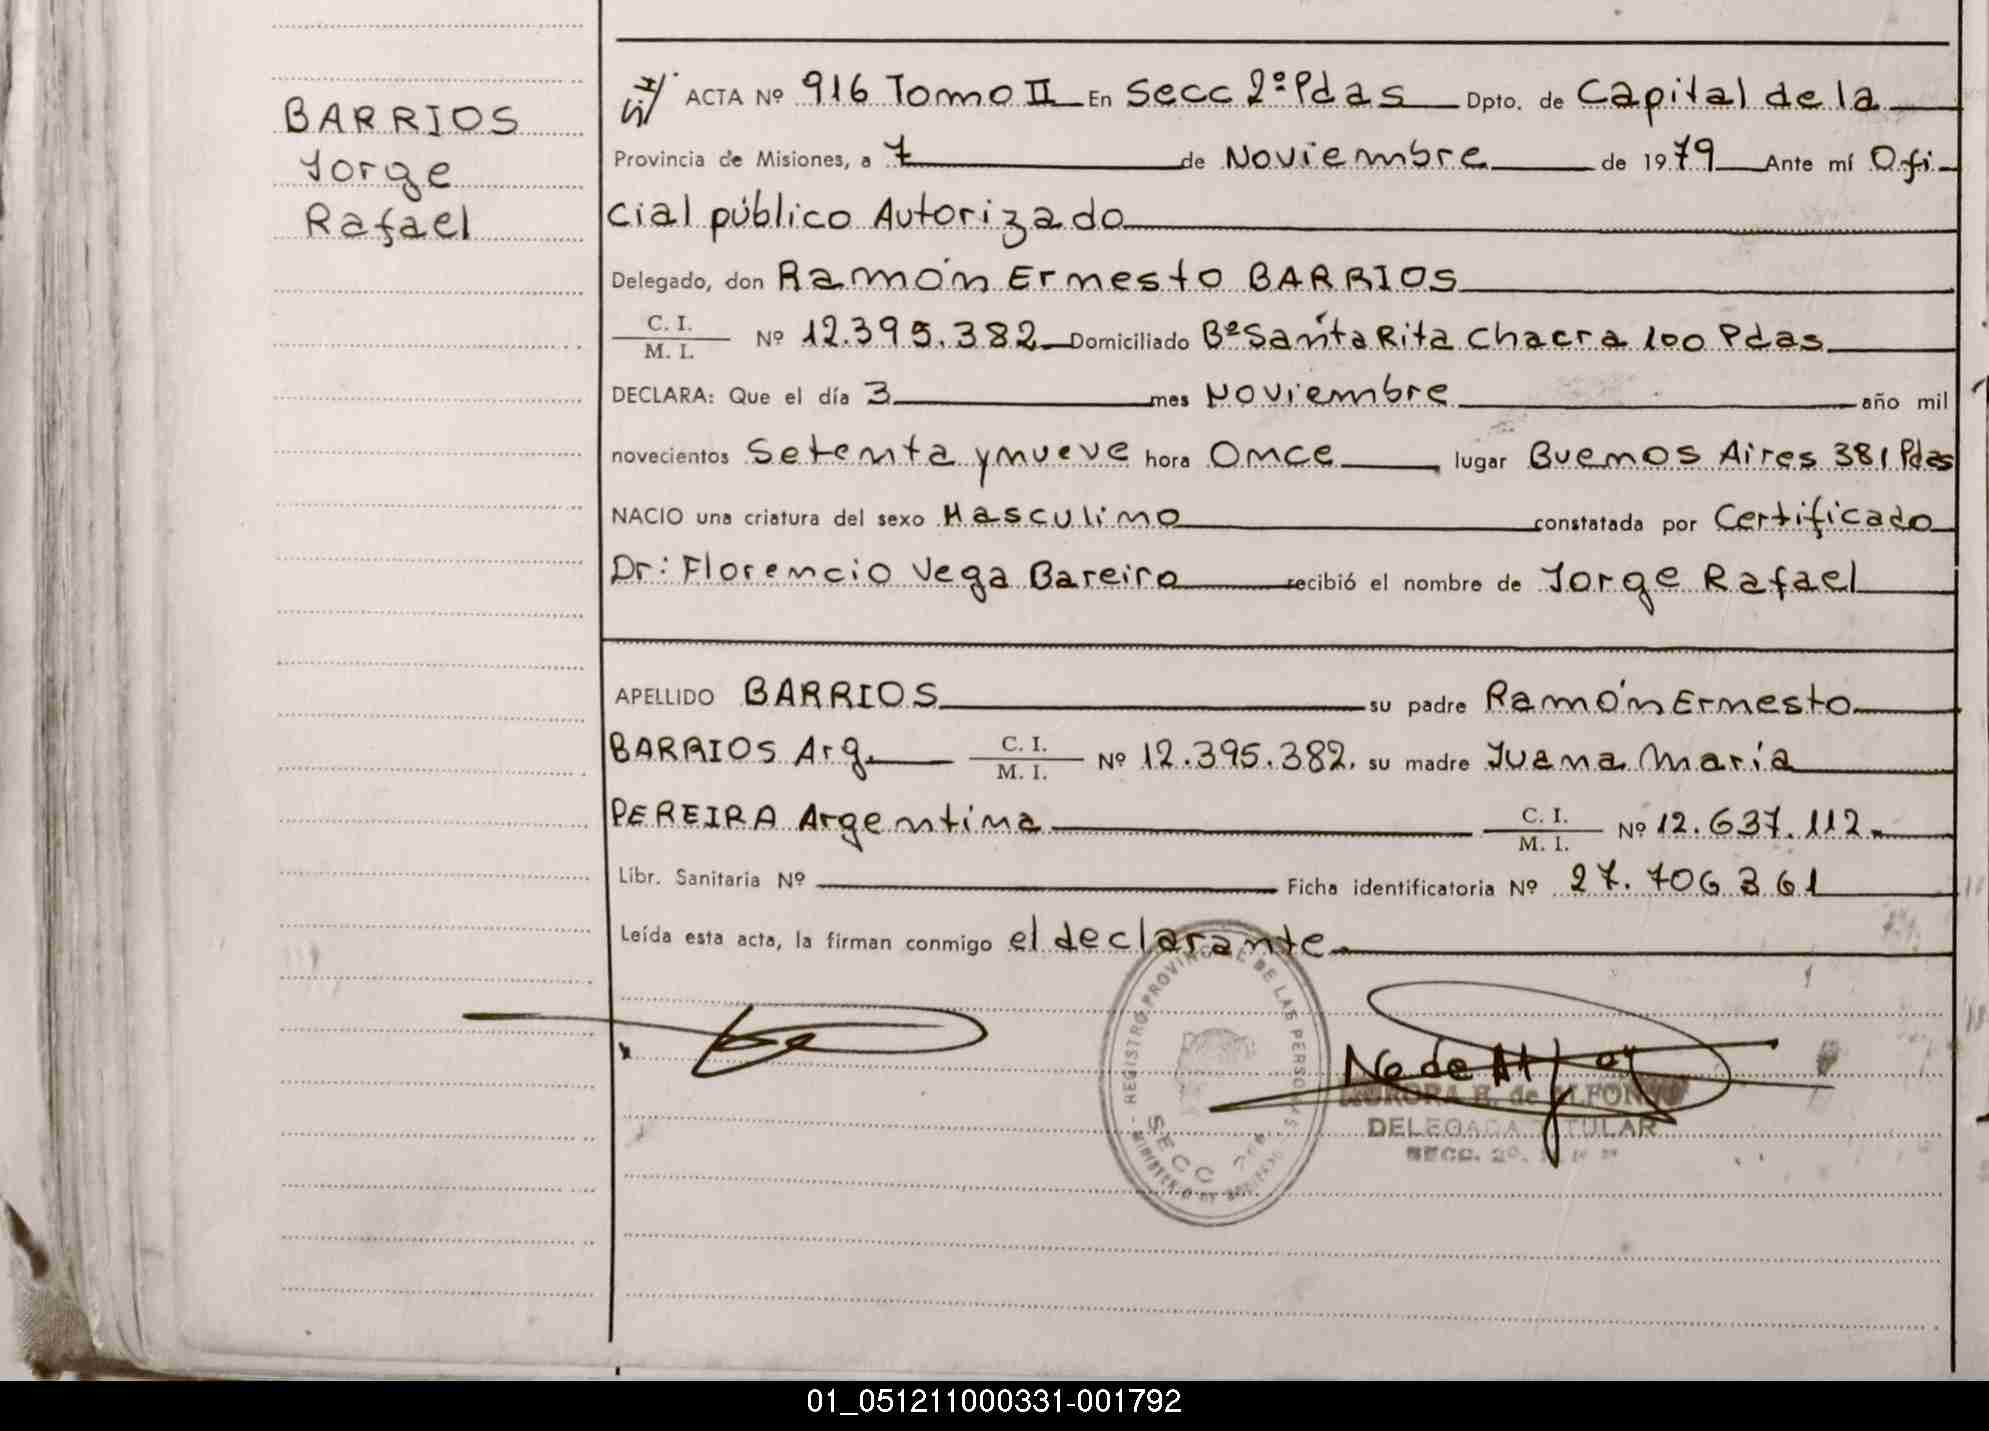 BARRIOS
Jorge
Rafael
ACTA Nº 916 Tomo II En Secc 2º Pdas Dpto. de Capital de la
Provincia de Misiones, a 7 de Noviembre de 1979 Ante mí Ofi
cial público Autorizado
Delegado, don Ramón Ernesto BARRIOS
C. I.
M. I. Nº 12.395.382 Domiciliado Bº Santa Rita Chacra 100 Pdas
DECLARA: Que el día 3 mes Noviembre año mil
novecientos Setenta y nueve hora Once lugar Buenos Aires 381 Pdas
NACIO una criatura del sexo Masculino constatada por Certificado
Dr: Florencio Vega Bareiro recibió el nombre de Jorge Rafael
APELLIDO BARRIOS su padre Ramón Ernesto
BARRIOS Arg. C. I. M. I. Nº 12.395.382. su madre Juana María
PEREIRA Argentina C. I. M. I. Nº 12.637.112
Libr. Sanitaria Nº Ficha identificatoria Nº 27.706361
Leída esta acta, la firman conmigo el declarante
REGISTRO PROVINCIAL DE LAS PERSONAS
SECC
AURORA H. de ALFONSO
DELEGADA TITULAR
SECC. 2º
01_051211000331-001792